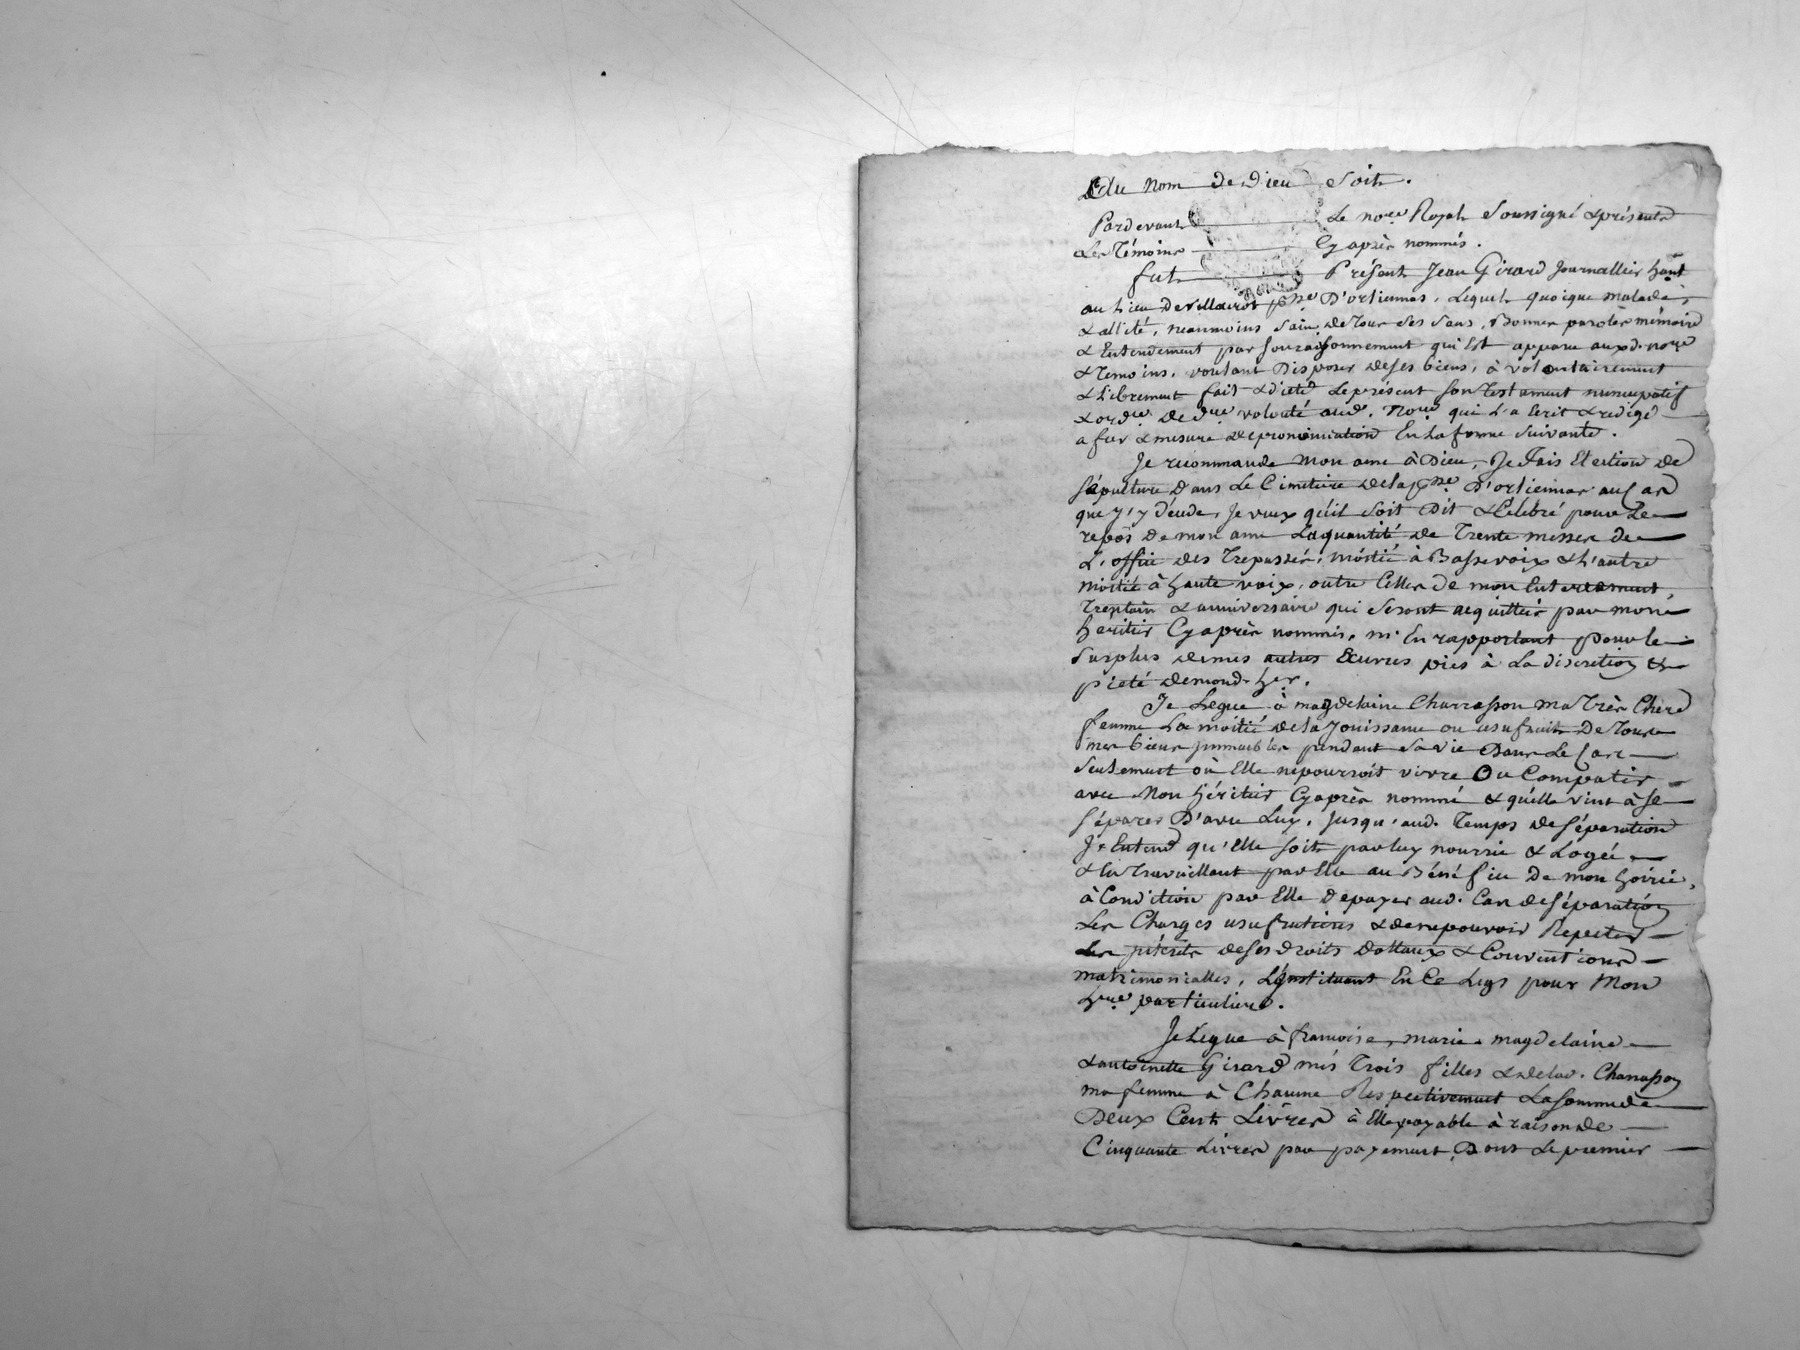 Au nom de Dieu soit.
Pardevant Le no.re Royal soussigné & présents
Les Témoins Cyaprès nommés.
fut Présent Jean Girard journallier ha.nt
au Lieu de villairot p.sse D'orliennas, Lequel quoique malade,
& allité, neanmoins sain de tous ses sens, Bonnes paroles mémoire
& Entendement par son raisonnement qui Est apparu auxd. no.re
& Temoins, voulant Disposer de ses biens, à volontairement
& Librement fait & dicté Le présent son testament nuncupatif
& ord.re de d.re volonté aud. No.re qui L'a Ecrit & redigé
a fur & mesure de prononciation En La forme suivante.
Je recommande mon ame à Dieu, Je Fais Election de
sépulture dans Le Cimetiere de la p.sse D'orliennas au Cas
que j'y décéde, Je veux qu'il soit Dit & Célébré pour Le
repôs de mon ame La quantité de Trente messes de
L'office des Trepassés, moitié à Basse voix & L'autre
moitié à haute voix, outre Celles de mon Enterrement,
Trentain & anniversaire qui seront acquittés par mon
héritier Cyaprès nommé, m'En rapportant pour le
surplus de mes autres Œuvres pies à La discretion &
pieté de mond. her.
Je Legue à magdelaine Charrasson ma Très Chere
femme La moitié de la jouissance ou usufruit De Tous
mes biens immeubles pendant sa vie Dans Le Cas
seulement où Elle ne pourroit vivre Ou Compatir
avec Mon héritier Cyaprès nommé & qu'elle vint à se
séparer D'avec Luy, jusqu'aud. Temps de séparation
J'Entend qu'Elle soit par luy nourrie & Logée
& En Travaillant par Elle au Bénéfice De mon hoirie,
à Condition par Elle de payer aud. Cas de séparation
Les Charges usufructieres & de ne pouvoir Repeter
Les intérêts de ses droits Dottaux & Conventions
matrimonialles, L'instituant En Ce Legs pour Mon
h.re particuliere.
Je Legue à francoise, marie magdelaine
& antoinette Girard mes Trois filles & de lad. Charrasson
ma femme à Chacune Respectivement La somme de
Deux Cent Livres à Elle payable à raison de
Cinquante Livres par payement, Dont Le premier